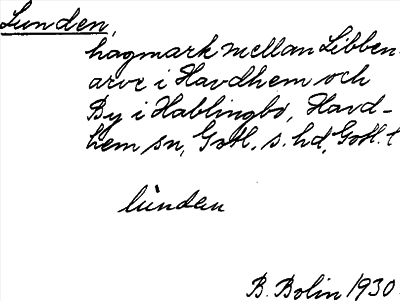 Lunden,
hagmark mellan Libben-
arve i Havdhem och
By i Hablingbo, Havd-
hem sn, Gotl. s. hd, Gotl. l
lùnden
B. Bolin 1930